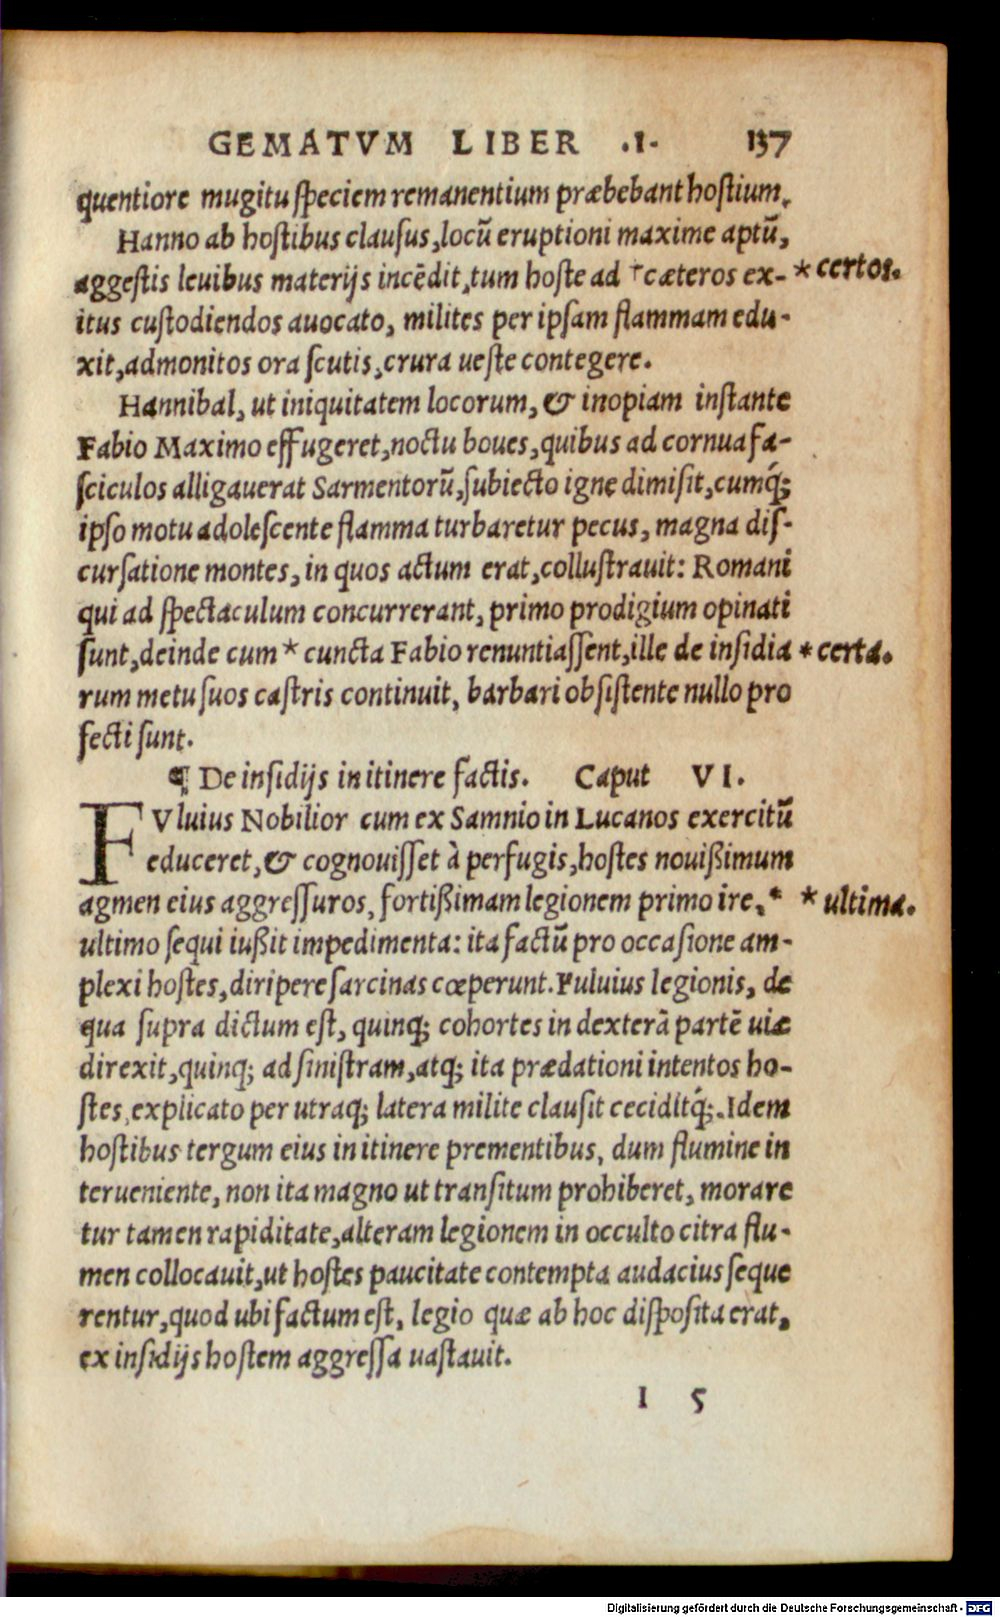 GEMATVM LIBER .I. 137
quentiore mugitu speciem remanentium præbebant hostium.
Hanno ab hostibus clausus,locū eruptioni maxime aptū,
aggestis leuibus materijs incēdit,tum hoste ad †cæteros ex- *certos.
itus custodiendos auocato, milites per ipsam flammam edu-
xit,admonitos ora scutis,crura ueste contegere.
Hannibal, ut iniquitatem locorum, & inopiam instante
Fabio Maximo effugeret,noctu boues,quibus ad cornua fa-
sciculos alligauerat Sarmentorū,subiecto igne dimisit,cumq́;
ipso motu adolescente flamma turbaretur pecus, magna dis-
cursatione montes, in quos actum erat,collustrauit: Romani
qui ad spectaculum concurrerant, primo prodigium opinati
sunt,deinde cum * cuncta Fabio renuntiassent,ille de insidia *certa.
rum metu suos castris continuit, barbari obsistente nullo pro
fecti sunt.
¶ De insidijs in itinere factis. Caput VI.
FVluius Nobilior cum ex Samnio in Lucanos exercitū
educeret,& cognouisset à perfugis,hostes nouißimum
agmen eius aggressuros, fortißimam legionem primo ire,* *ultima.
ultimo sequi iußit impedimenta: ita factū pro occasione am-
plexi hostes,diripere sarcinas cœperunt.Fuluius legionis, de
qua supra dictum est, quinq; cohortes in dexterā partē uiæ
direxit,quinq; ad sinistram,atq; ita prædationi intentos ho-
stes,explicato per utraq; latera milite clausit ceciditq́;.Idem
hostibus tergum eius in itinere prementibus, dum flumine in
terueniente, non ita magno ut transitum prohiberet, morare
tur tamen rapiditate,alteram legionem in occulto citra flu-
men collocauit,ut hostes paucitate contempta audacius seque
rentur,quod ubi factum est, legio quæ ab hoc disposita erat,
ex insidijs hostem aggressa uastauit.
I 5
Digitalisierung gefördert durch die Deutsche Forschungsgemeinschaft - DFG